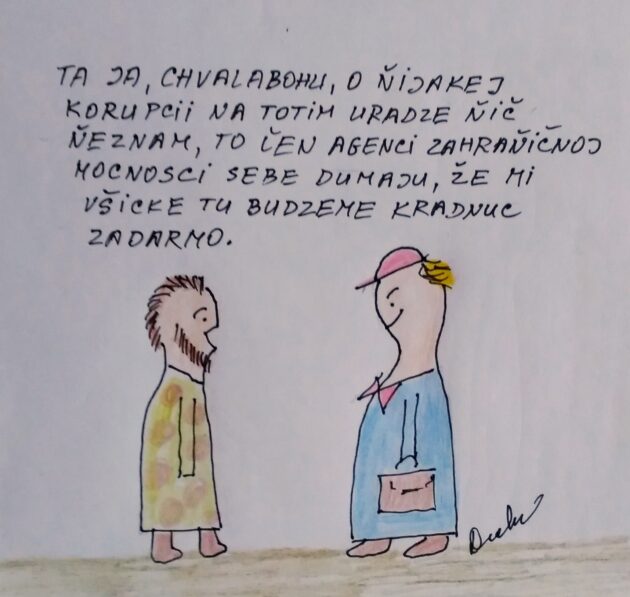 TA JA, CHVALABOHU, O ŇIJAKEJ
KORUPCII NA TOTIM URADZE ŇIČ
ŇEZNAM, TO ĽEN AGENCI ZAHRAŇIČNOJ
MOCNOSCI SEBE DUMAJU, ŽE MI
VŠICKE TU BUDZEME KRADNUC
ZADARMO.